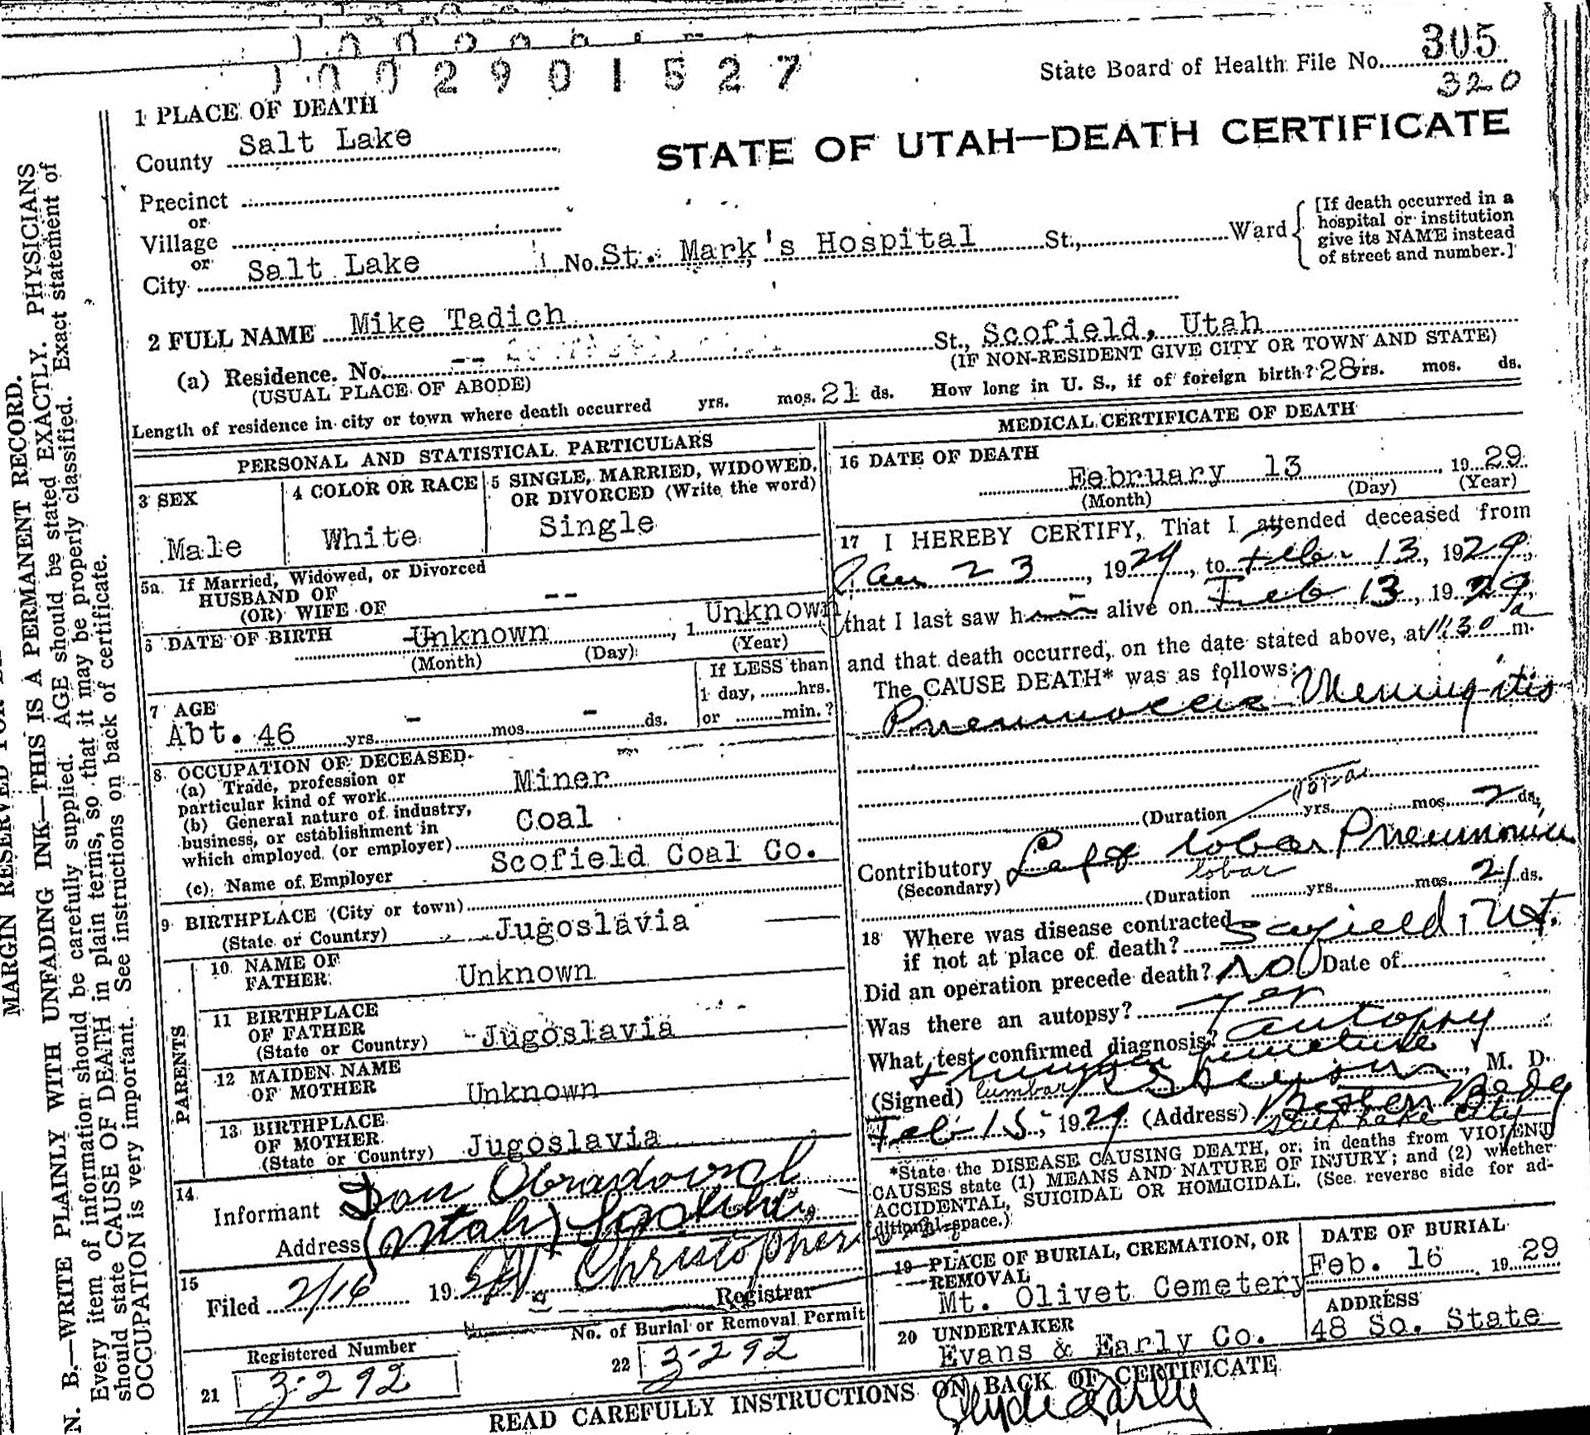 1002901527
State Board of Health File No. 305
320
1 PLACE OF DEATH
County Salt Lake
STATE OF UTAH—DEATH CERTIFICATE
Precinct
or
Village
or
City Salt Lake No. St. Mark's Hospital St., Ward
[If death occurred in a
hospital or institution
give its NAME instead
of street and number.]
2 FULL NAME Mike Tadich
(a) Residence. No. -- St., Scofield, Utah
(USUAL PLACE OF ABODE) (IF NON-RESIDENT GIVE CITY OR TOWN AND STATE)
Length of residence in city or town where death occurred yrs. mos. 21 ds. How long in U. S., if of foreign birth? 28 yrs. mos. ds.
PERSONAL AND STATISTICAL PARTICULARS
3 SEX
Male
4 COLOR OR RACE
White
5 SINGLE, MARRIED, WIDOWED,
OR DIVORCED (Write the word)
Single
5a. If Married, Widowed, or Divorced
HUSBAND OF
(OR) WIFE OF --
6 DATE OF BIRTH Unknown , 1 Unknown
(Month) (Day) (Year)
7 AGE
Abt. 46 yrs. - mos. - ds.
If LESS than
1 day, hrs.
or min.?
8 OCCUPATION OF DECEASED
(a) Trade, profession or
particular kind of work Miner
(b) General nature of industry,
business, or establishment in
which employed (or employer) Coal
(c) Name of Employer Scofield Coal Co.
9 BIRTHPLACE (City or town)
(State or Country) Jugoslavia
PARENTS
10 NAME OF
FATHER Unknown
11 BIRTHPLACE
OF FATHER
(State or Country) Jugoslavia
12 MAIDEN NAME
OF MOTHER Unknown
13 BIRTHPLACE
OF MOTHER
(State or Country) Jugoslavia
14
Informant Dan
Address (Utah)
15
Filed 2/16 1929 Christopher
Registrar
Registered Number
21 3292
No. of Burial or Removal Permit
22 3292
MEDICAL CERTIFICATE OF DEATH
16 DATE OF DEATH
February 13 1929
(Month) (Day) (Year)
17 I HEREBY CERTIFY, That I attended deceased from
Jan 23, 1929, to Feb 13, 1929,
that I last saw him alive on Feb 13, 1929,
and that death occurred, on the date stated above, at 11:30 a m.
The CAUSE DEATH* was as follows:
Pneumoccic Meningitis
(Duration yrs. mos. 2 ds.
Contributory Left lobar Pneumonia
(Secondary) lobar
(Duration yrs. mos. 21 ds.
18 Where was disease contracted
if not at place of death? Scofield, Ut.
Did an operation precede death? No Date of
Was there an autopsy? Yes
What test confirmed diagnosis? autopsy
+ lumbar puncture
(Signed) lumbar M. D.
Feb 15, 1929 (Address) Boston Bldg
Salt Lake City
*State the DISEASE CAUSING DEATH, or, in deaths from VIOLENT
CAUSES state (1) MEANS AND NATURE OF INJURY; and (2) whether
ACCIDENTAL, SUICIDAL OR HOMICIDAL. (See reverse side for ad-
ditional space.)
19 PLACE OF BURIAL, CREMATION, OR
REMOVAL
Mt. Olivet Cemetery
DATE OF BURIAL
Feb. 16 1929
20 UNDERTAKER
Evans & Early Co.
ADDRESS
48 So. State
READ CAREFULLY INSTRUCTIONS ON BACK OF CERTIFICATE
Clyde Early
N. B.—WRITE PLAINLY WITH UNFADING INK—THIS IS A PERMANENT RECORD.
Every item of information should be carefully supplied. AGE should be stated EXACTLY. PHYSICIANS
should state CAUSE OF DEATH in plain terms, so that it may be properly classified. Exact statement of
OCCUPATION is very important. See instructions on back of certificate.
MARGIN RESERVED FOR